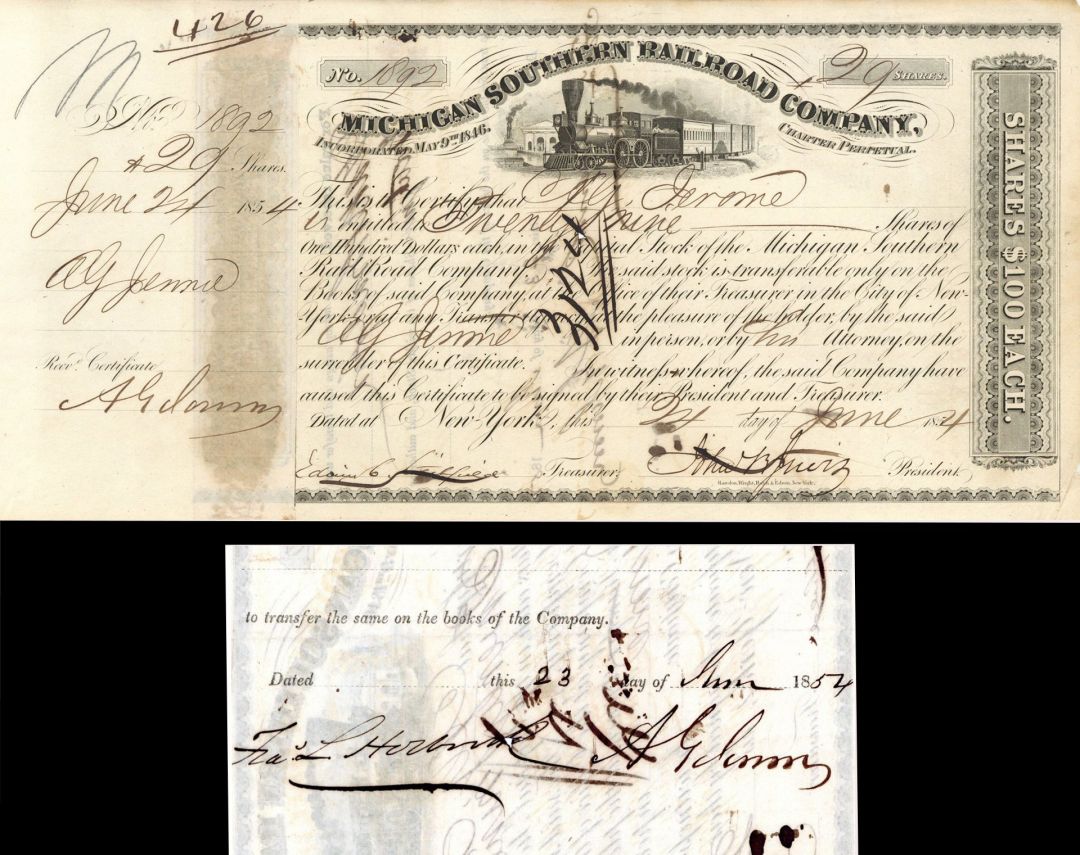 426
No. 1892
29 Shares.
June 24 1854
A G Jerome
Recd. Certificate
A G Jerome
No. 1892
29 SHARES.
MICHIGAN SOUTHERN RAILROAD COMPANY,
INCORPORATED MAY 9TH 1846.
CHARTER PERPETUAL.
This is to Certify that A G Jerome
is entitled to Twenty nine Shares of
One Hundred Dollars each, in the Capital Stock of the Michigan Southern
Rail Road Company. The said stock is transferable only on the
Books of said Company, at the Office of their Treasurer in the City of New-
York or at any Transfer at the pleasure of the holder, by the said
A G Jerome in person, or by his Attorney, on the
surrender of this Certificate. In witness whereof, the said Company have
caused this Certificate to be signed by their President and Treasurer.
Dated at New-York, this 24 day of June 1854
Edwin C. Litchfield Treasurer. President.
SHARES $100 EACH.
31251
to transfer the same on the books of the Company.
Dated this 23 day of June 1854
A G Jerome